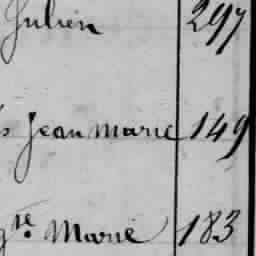 Julien 297
s Jean Marie 149
gte Marie 183